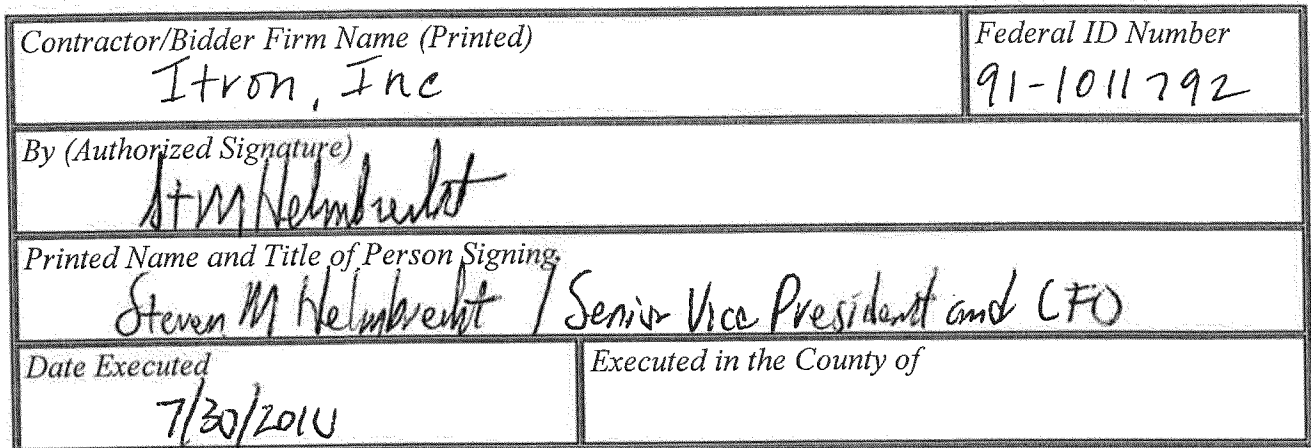 Contractor/Bidder Firm Name (Printed)
Itron, Inc
Federal ID Number
91-1011792
By (Authorized Signature)
St M Helmbrecht
Printed Name and Title of Person Signing
Steven M Helmbrecht / Senior Vice President and CFO
Date Executed
7/30/2010
Executed in the County of